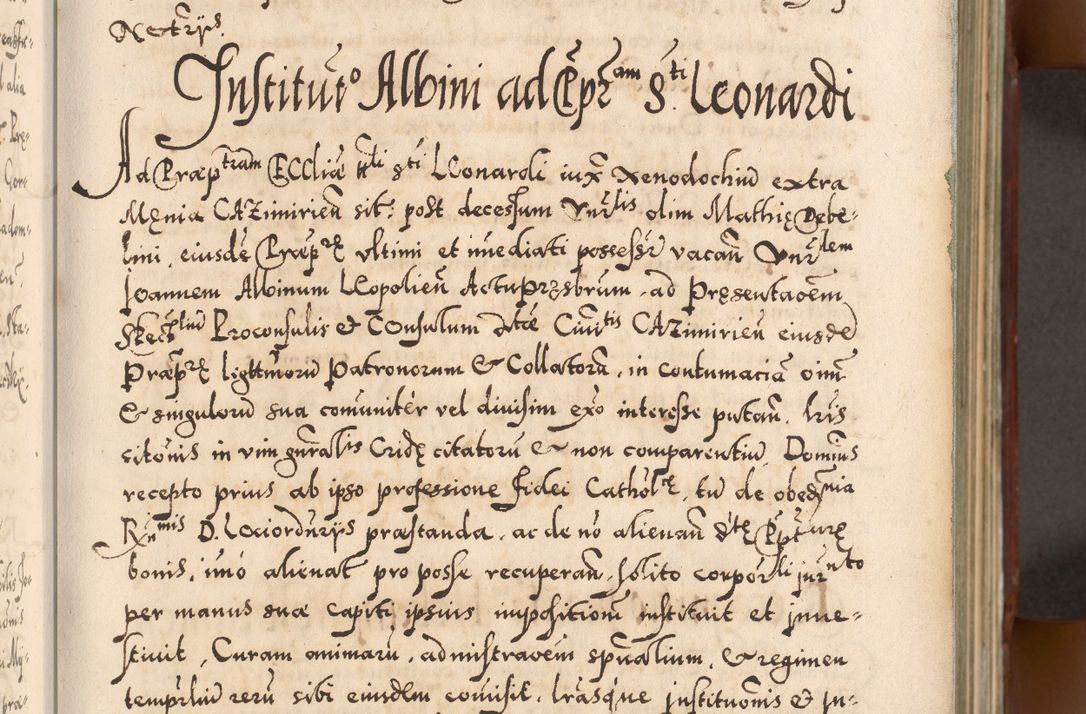 Nectrijs.
Institutº Albini ad Ep̄r̄am Sti Leonardi
Ad Præptram Eccliæ ttli Sti Leonardi iux̄ Xenodochiū extra
Męnia Cazimirieñ sit: post decessum Vnr̄lis olim Mathię Debe-
lini, eiusdē Præp̄ræ vltimi et im̄ediati possess̄r vacañ Vnr̄lem
Joannem Albinum Leopolieñ Actu Præsbrum, ad Pręsentaōem
Skectliū Proconsulis et Consulum d̄tæ Ciuitis Cazimirieñ eiusdē
Præp̄ræ ligttimorū Patronorum & Collatorū, in contumaciā oim̄
& singulorū sua com̄uniter vel diuisim ex̄o interesse putañ, lr̄is
citōnis in vim gn̄ralis Cridę citatorū & non comparentiū, Dominus
recepto prius ab ipso professione fidei Catholcæ, tū de obedn̄ia
Rn̄mis D. Lociordn̄rijs præstanda, ac de nō alienañ d̄tę Ep̄turę
bonis, imō alienat̄ pro posse recuperañ, solito corporli jurnto
per manus suæ capiti ipsius impositionī instituit et inue-
stiuit, Curam animarū, admistraōem spūalium, & regimen
temprliū rerū sibi eiusdem com̄isit, lr̄asque institutōnis & In-